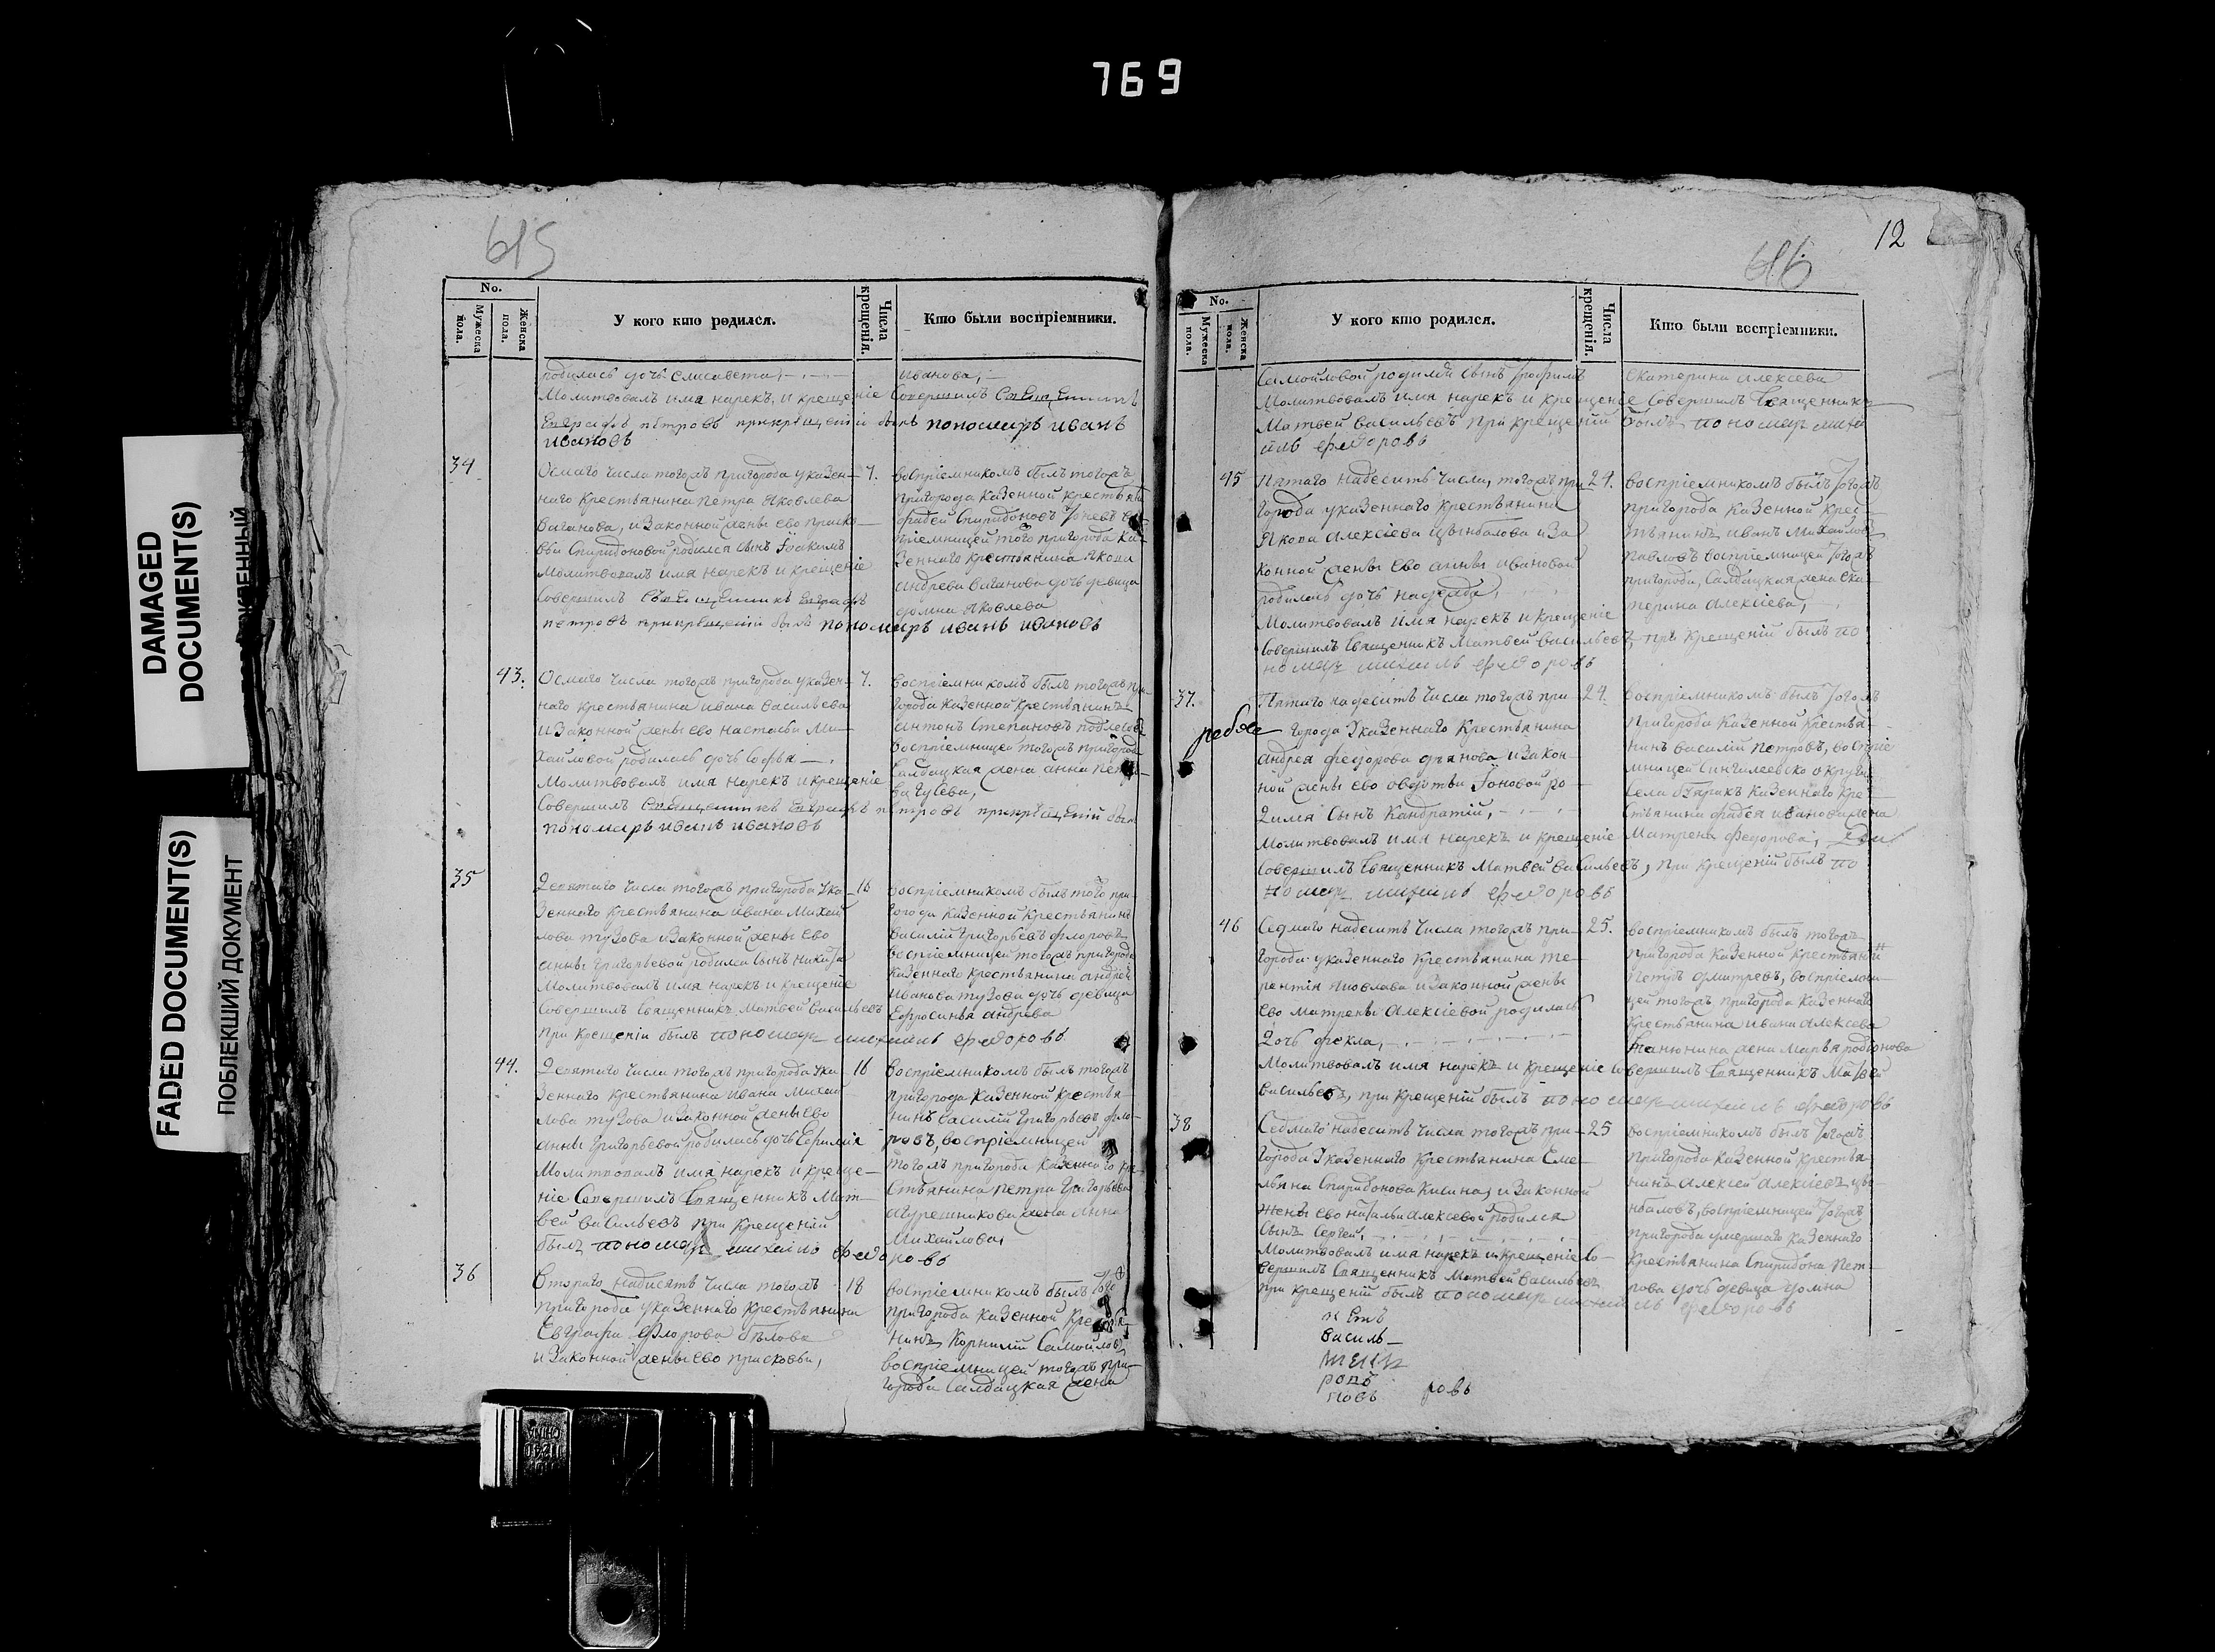 769
DAMAGED
DOCUMENT(S)
FADED DOCUMENT(S)
ПОБЛЕКШИЙ ДОКУМЕНТ
615
No.
Мужеска пола.
Женска пола.
У кого кто родился.
Числа крещенія.
Кто были воспріемники.
родилась дочь Елисавета,
Иванова,
Молитвовалъ имя нарекъ, и крещеніе Совершилъ Священникъ
Евграфъ петровъ прикрещеніи былъ пономарь иванъ
ивановъ
34
Осмаго числа тогожъ пригорода указен-
наго крестьянина петра Яковлева
Ваганова, и Законной жены ево праско-
вьи Спиридоновой родился Сынъ Іоакимъ
Молитвовалъ имя нарекъ и крещеніе
Совершилъ Священникъ Евграфъ
петровъ прикрещеніи былъ пономарь иванъ ивановъ
7.
воспріемникомъ былъ тогожъ
пригорода казенной крестьян
фадей Спиридоновъ
пріемницей того пригорода ка
зеннаго крестьянина Якова
андрева ваганова дочь девица
домна Яковлева
43.
Осмаго числа тогожъ пригорода указен-
наго крестьянина ивана васильева
и Законной жены ево настасьи Ми-
хайловой родилась дочь Софья
Молитвовалъ имя нарекъ и крещеніе
Совершилъ Священникъ Евграфъ петровъ прикрещеніи былъ
пономарь иванъ ивановъ
7.
воспріемникомъ былъ тогожъ при-
города казенной крестьянинъ
антонъ Степановъ
воспріемницей тогожъ пригорода
Салдацкая жена анна петро-
ва гусева,
35
Девятаго числа тогожъ пригорода Ука-
зеннаго крестьянина ивана Михай
лова тузова и Законной жены ево
анны григорьевой родился Сынъ никита
Молитвовалъ имя нарекъ и крещеніе
Совершилъ Священникъ Матвей васильевъ
при крещеніи былъ пономарь михаилъ федоровъ
16
воспріемникомъ былъ того при-
города казенной крестьянинъ
василій григорьевъ флоровъ
воспріемницей тогожъ пригорода
казеннаго крестьянина андрея
иванова тузова дочь девица
Ефросинья андрева
44.
Девятаго числа тогожъ пригорода Ука-
зеннаго крестьянина ивана Михай
лова тузова и Законной жены ево
анны григорьевой родилась дочь Ефимія
Молитвовалъ имя нарекъ и креще-
ніе Совершилъ Священникъ Мат-
вей васильевъ при крещеніи
былъ пономарь михаилъ федоровъ
16
воспріемникомъ былъ тогожъ
пригорода казенной крестья-
нинъ василій григорьевъ фло-
ровъ, воспріемницей
тогожъ пригорода казеннаго кре
стьянина петра григорьева
жена анна
Михайлова,
36
Втораго надесять числа тогожъ
пригорода указеннаго крестьянина
Евграфа флорова белова
и Законной жены ево прасковьи,
18
воспріемникомъ былъ того
пригорода казенной крестья
нинъ корнилій Самойловъ
воспріемницей тогожъ при-
города Салдацкая жена
12
616
No.
Мужеска пола.
Женска пола.
У кого кто родился.
Числа крещенія.
Кто были воспріемники.
Самойловой родился Сынъ трофимъ
Екатерина Алексева
Молитвовалъ имя нарекъ и крещеніе Совершилъ Священникъ
Матвей васильевъ при крещеніи былъ пономарь миха
илъ федоровъ
45
Пятаго надесять числа, тогожъ при
города указеннаго крестьянина
Якова Алексіева цынбалова и За
конной жены ево анны ивановой
родилась дочь надежда,
Молитвовалъ имя нарекъ и крещеніе
Совершилъ Священникъ Матвей васильевъ, при крещеніи былъ по
номарь михаилъ федоровъ
24.
воспріемникомъ былъ тогожъ
пригорода казенной крес-
тьянинъ иванъ михайловъ
павловъ воспріемницей тогожъ
пригорода, Салдацкая жена ека-
терина алексіева,
37.
Пятаго надесять числа тогожъ при
города Указеннаго крестьянина
андрея федорова и Закон-
ной жены ево авдотьи Іоновой ро
дился Сынъ Кандратій,
Молитвовалъ имя нарекъ и крещеніе
Совершилъ Священникъ Матвей васильевъ, при крещеніи былъ по
номарь михаилъ федоровъ
24.
воспріемникомъ былъ тогожъ
пригорода казенной крестья-
нинъ василій петровъ, воспріе
мницей Сингилеевско округи
села казеннаго кре
стьянина фадея иванова жена
Матрена федорова,
46
Седмаго надесять числа тогожъ при-
города указеннаго крестьянина те-
рентія яковлева и Законной жены
ево матрены алексіевой родилась
Дочь фекла,
Молитвовалъ имя нарекъ и крещеніе совершилъ Священникъ Матвей
васильевъ, при крещеніи былъ пономарь михаилъ федоровъ
25.
воспріемникомъ былъ тогожъ
пригорода казенной крестьянин
петръ дмитревъ, воспріемни-
цей тогожъ пригорода казеннаго
крестьянина ивана алексева
жена марья родіонова
38
Седмаго надесять числа тогожъ при-
города Указеннаго крестьянина Еме-
льяна Спиридонова кисина, и Законной
жены ево натальи алексевой родился
Сынъ Сергей,
Молитвовалъ имя нарекъ и крещеніе Со-
вершилъ Священникъ Матвей васильевъ
при крещеніи былъ пономарь михаилъ федоровъ
25
воспріемникомъ былъ тогожъ
пригорода казенной крестья
нинъ алексей алексіевъ цы-
нбаловъ, воспріемницей тогожъ
пригорода умершаго казеннаго
крестьянина Спиридона пет-
рова дочь девица домна
василь
ровъ